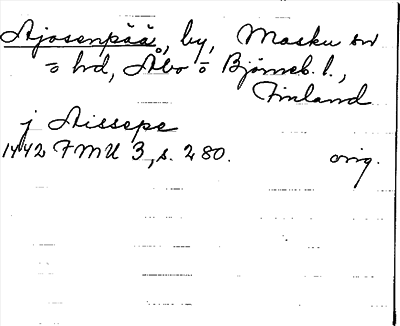 Ajosenpää, by, Masku sn
o hd, Åbo o Björneb. l.,
Finland
j Aissepe
1442 FMU 3, s. 280. orig.